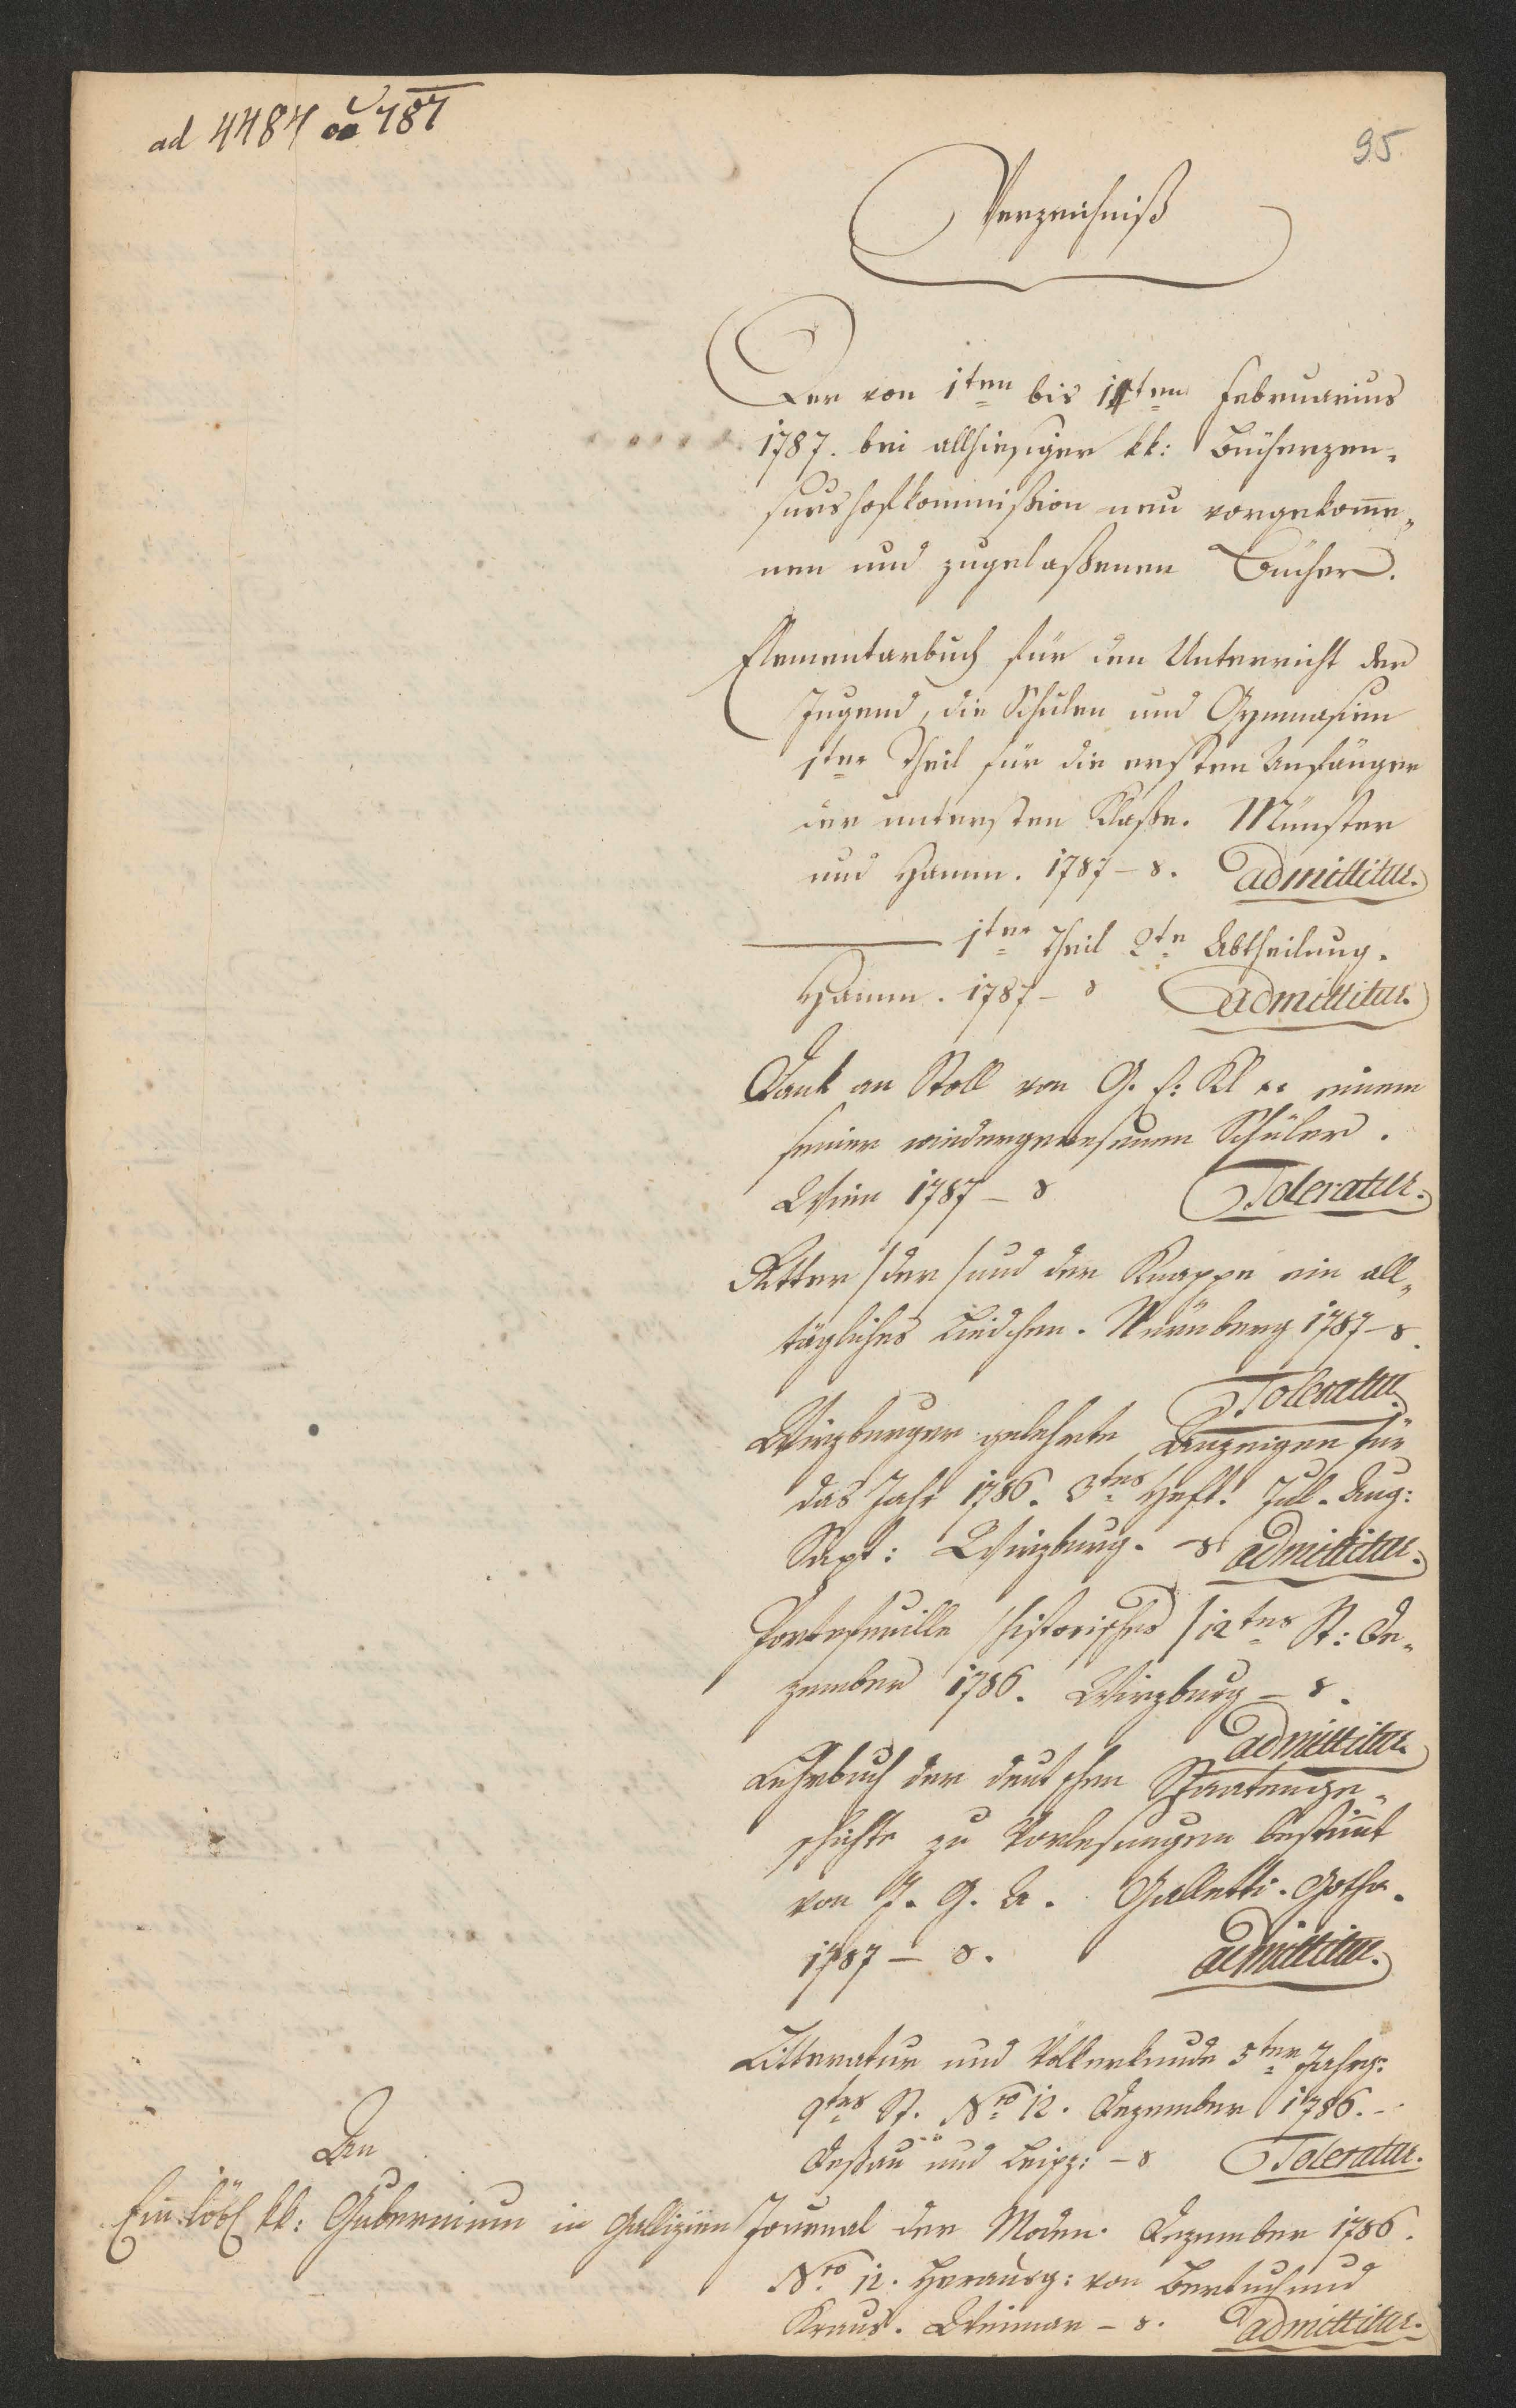 ad 4484 787
95.
Verzeichniß
Der von 1ten bis 14ten Februarius
1787. bei allhiesiger kk: Bücherzen-
surshofkommißion neu vorgekom̄e-
nen und zugelaßenen Bücher.
Elementarbuch für den Unterricht der
Jugend, die Schulen und Gymnasien
1ter Theil für die ersten Anfänger
der untersten Klaße. Münster
und Hamm. 1787 – 8. admittitur.
——— 1ter Theil 2te Abtheilung.
Hamm. 1787 – 8 admittitur.
Dank an Stoll von G. f: Kl .. einem
seiner wiedergenesenen Schüler.
Wien 1787 – 8 Toleratur.
Ritter /der/ und der Knappe ein all-
tägliches Liedchen. Nürnberg 1787 – 8.
Toleratur.
Wirzburger gelehrte Anzeigen für
das Jahr 1786. 3tes Heft. Jul. Aug:
Sept: Wirzburg. – 8 admittitur.
Portefeuille /historisches/ 12tes St: De-
zember 1786. Wirzburg – 8.
admittitur.
Lehrbuch der deutschen Staatenge-
schichte zu Vorlesungen bestim̄t
von J. G. A. Galletti. Gotha.
1787 – 8. admittitur.
Litteratur und Völkerkunde 5ter Jahrg:
9tes St. Nro 12. Dezember 1786. –
Deßau und Leipz: – 8 Toleratur.
An
Ein löbl kk: Gubernium in Gallizien
Journal der Moden. Dezember 1786.
Nro 12. Herausg: von Bertuch und
Kraus. Weimar – 8. admittitur.